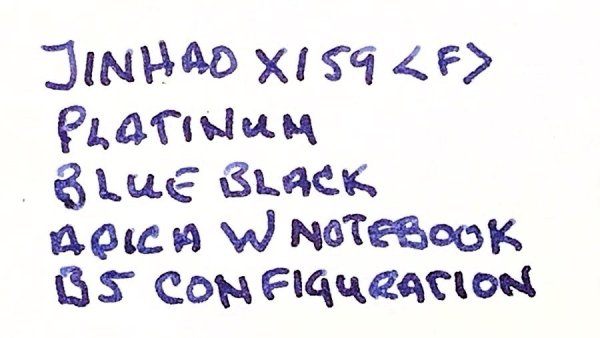 JINHAO X159 <F>
PLATINUM
BLUE BLACK
APICA W NOTEBOOK
B5 CONFIGURATION